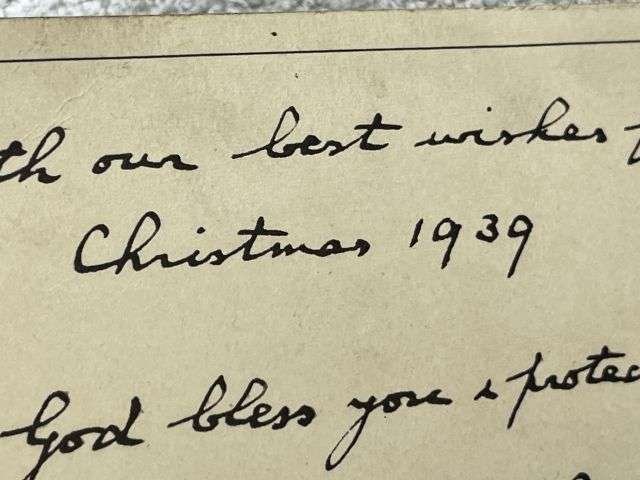 th our best wishes f
Christmas 1939
God bless you & protec